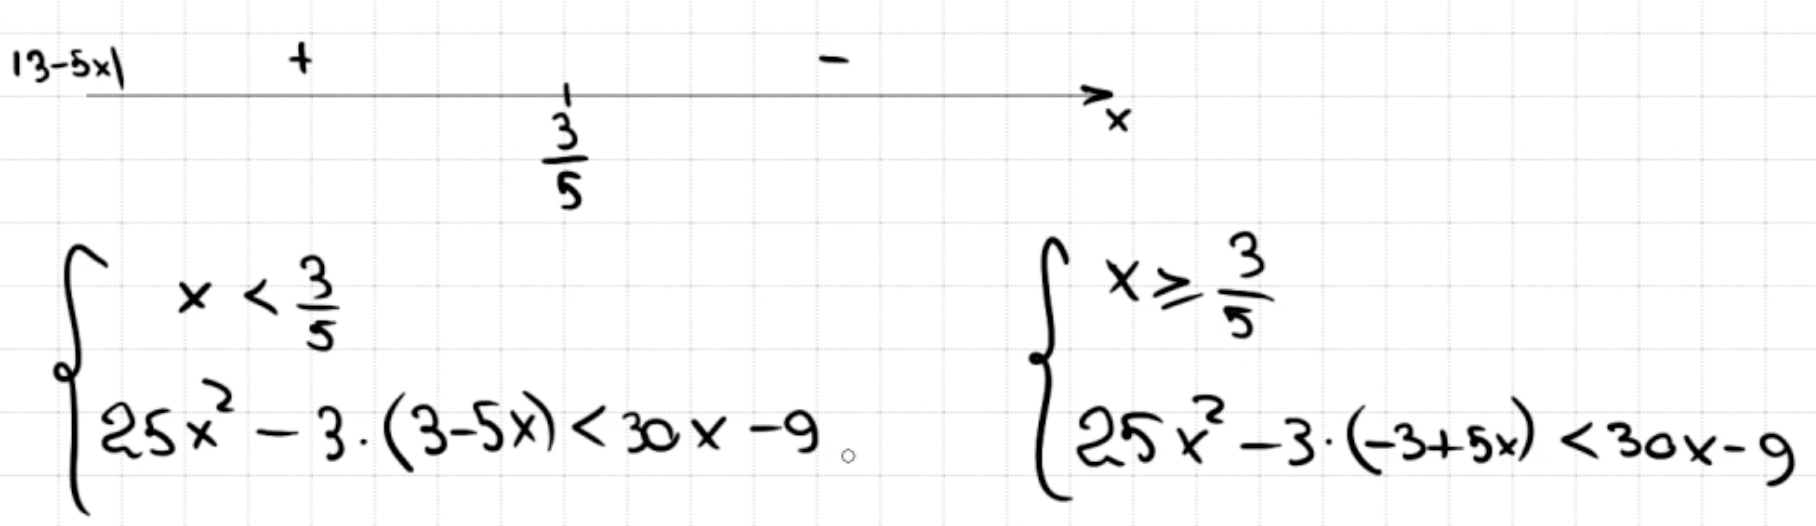 |3-5x| + -
x
3/5
x < 3/5
25x² - 3·(3-5x) < 30x - 9
x ⩾ 3/5
25x² - 3·(-3+5x) < 30x - 9